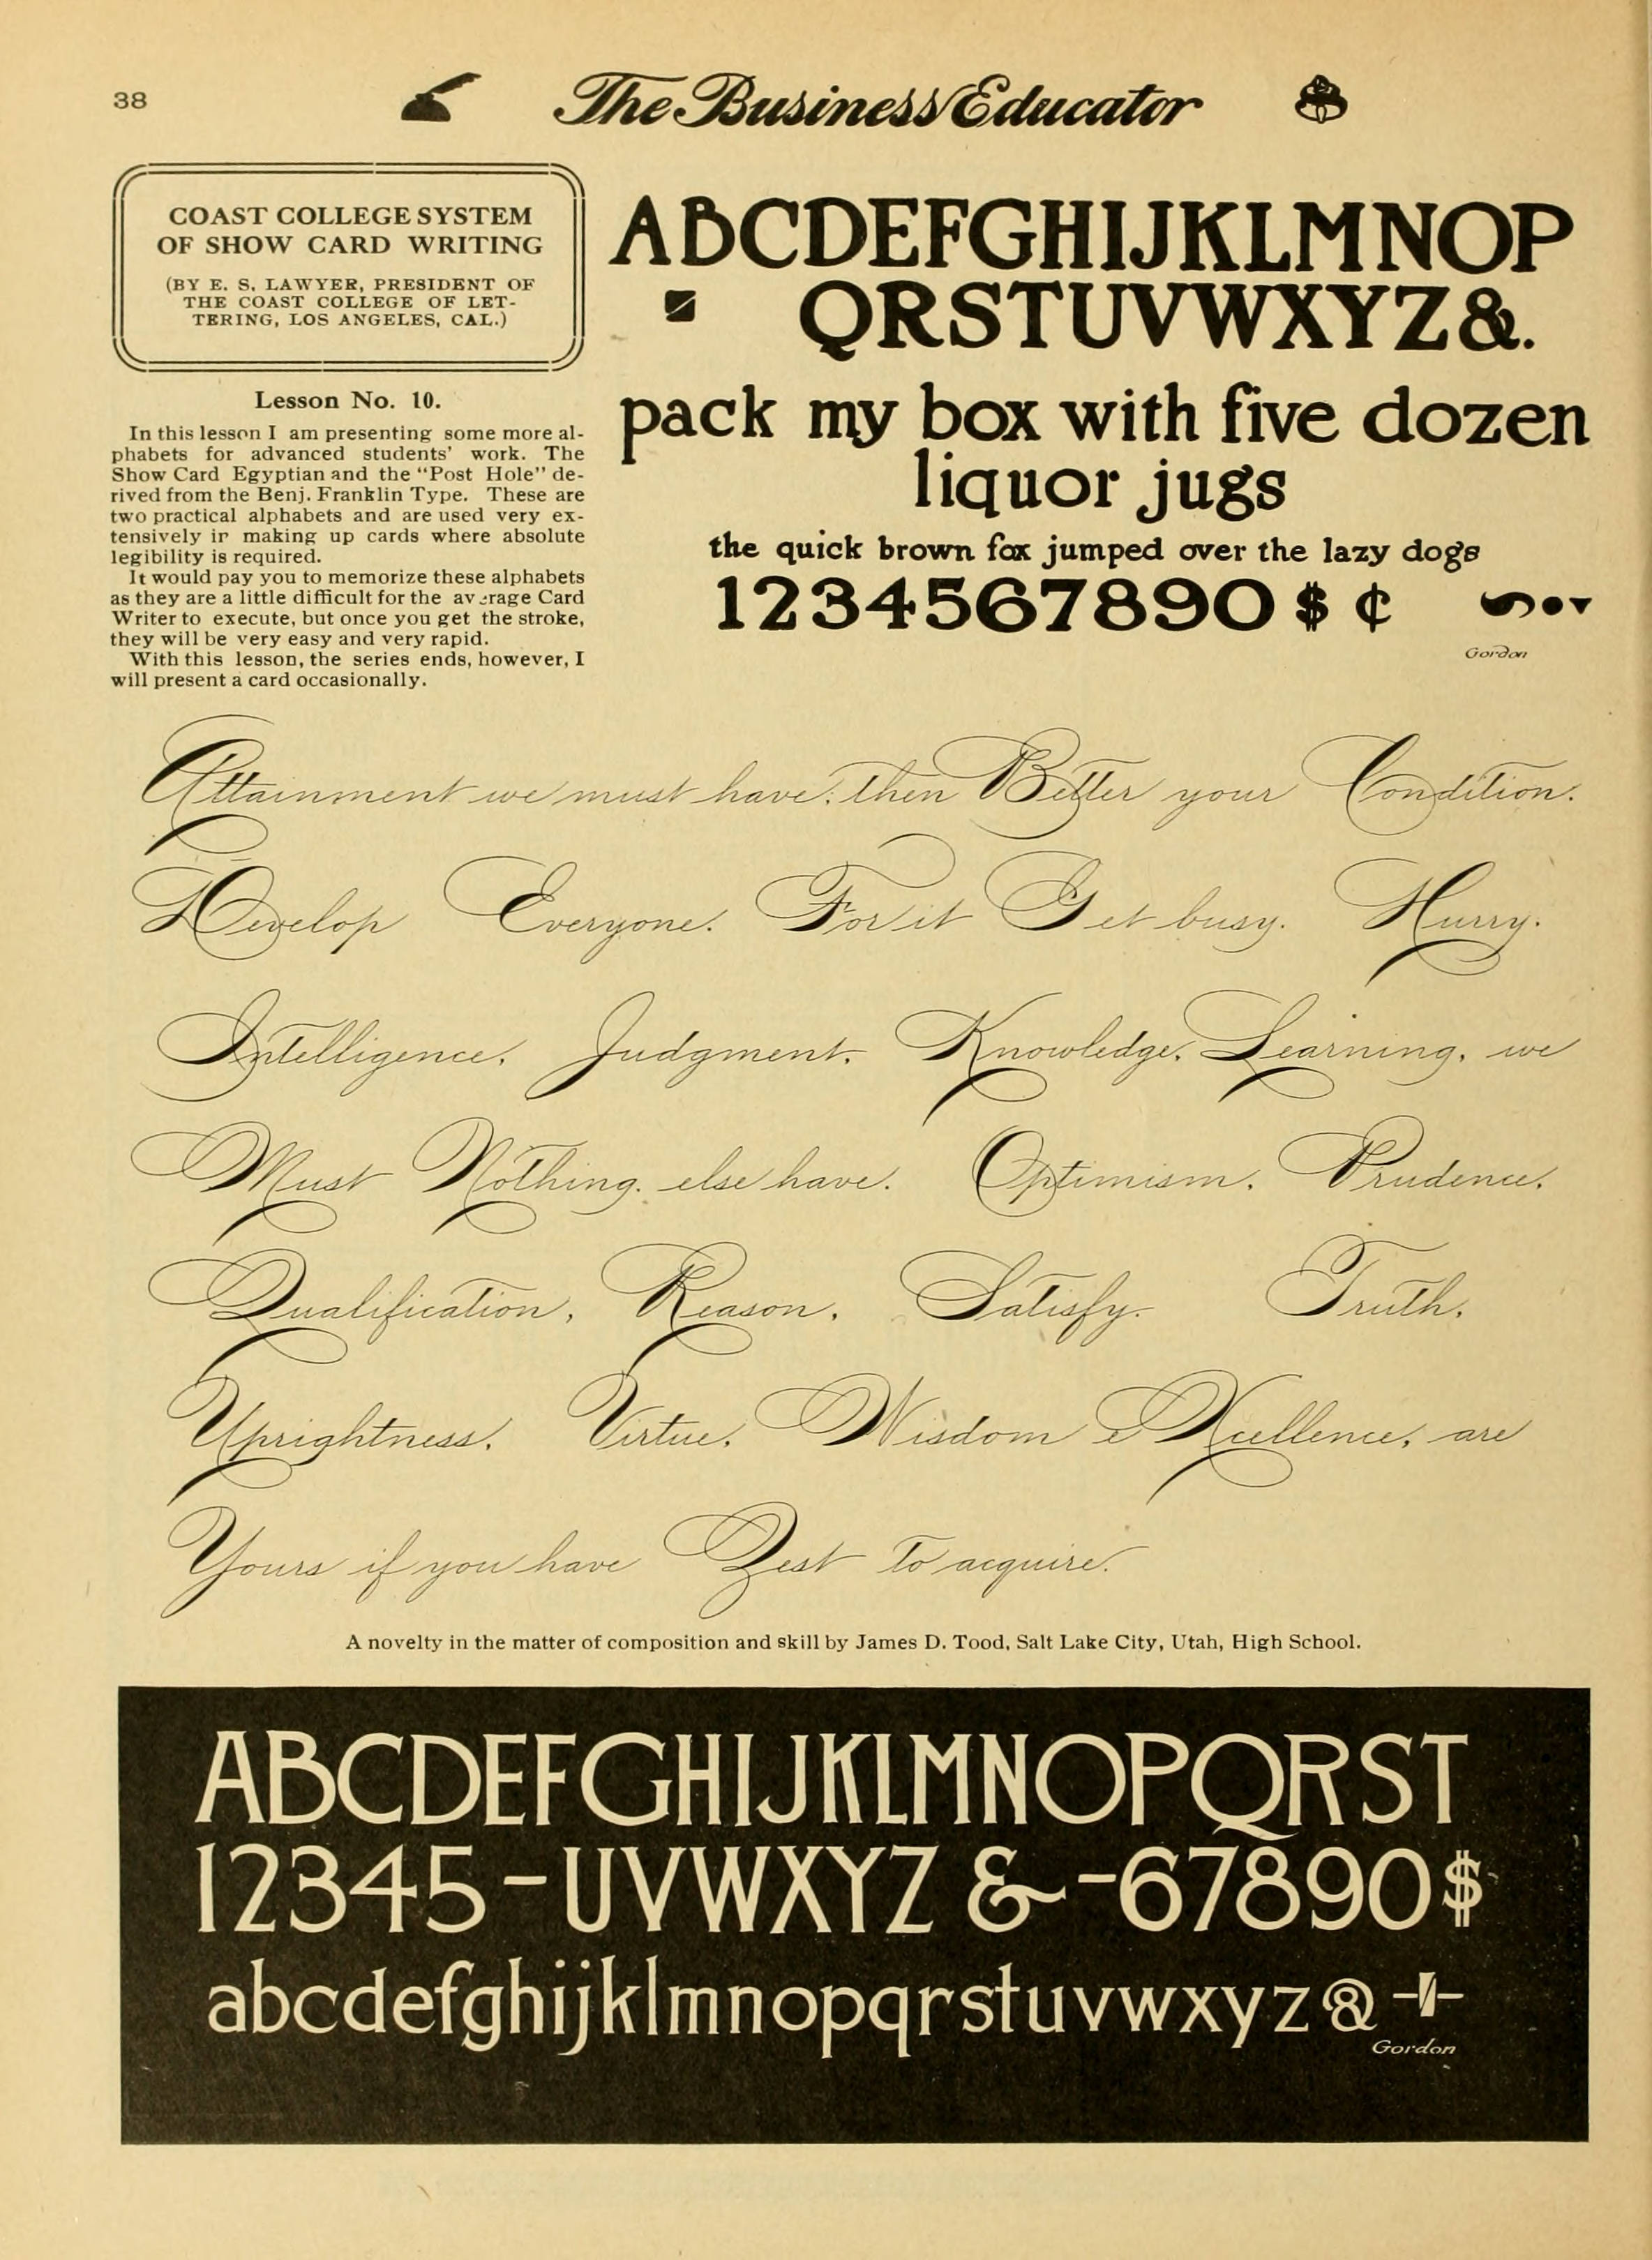 38
The Business Educator
COAST COLLEGE SYSTEM
OF SHOW CARD WRITING
(BY E. S. LAWYER, PRESIDENT OF
THE COAST COLLEGE OF LET-
TERING, LOS ANGELES, CAL.)
Lesson No. 10.
In this lesson I am presenting some more al-
phabets for advanced students' work. The
Show Card Egyptian and the "Post Hole" de-
rived from the Benj. Franklin Type. These are
two practical alphabets and are used very ex-
tensively in making up cards where absolute
legibility is required.
It would pay you to memorize these alphabets
as they are a little difficult for the average Card
Writer to execute, but once you get the stroke,
they will be very easy and very rapid.
With this lesson, the series ends, however, I
will present a card occasionally.
ABCDEFGHIJKLMNOP
QRSTUVWXYZ&.
pack my box with five dozen
liquor jugs
the quick brown fox jumped over the lazy dogs
1234567890 $ ¢
Gordon
Attainment we must have: then Better your Condition.
Develop Everyone. For it Get busy. Hurry.
Intelligence, Judgment, Knowledge, Learning, we
Must Nothing else have. Optimism, Prudence,
Qualification, Reason, Satisfy. Truth,
Uprightness, Virtue, Wisdom eXcellence, are
Yours if you have Zest to acquire.
A novelty in the matter of composition and skill by James D. Tood, Salt Lake City, Utah, High School.
ABCDEFGHIJKLMNOPQRST
12345-UVWXYZ & -67890$
abcdefghijklmnopqrstuvwxyz
Gordon